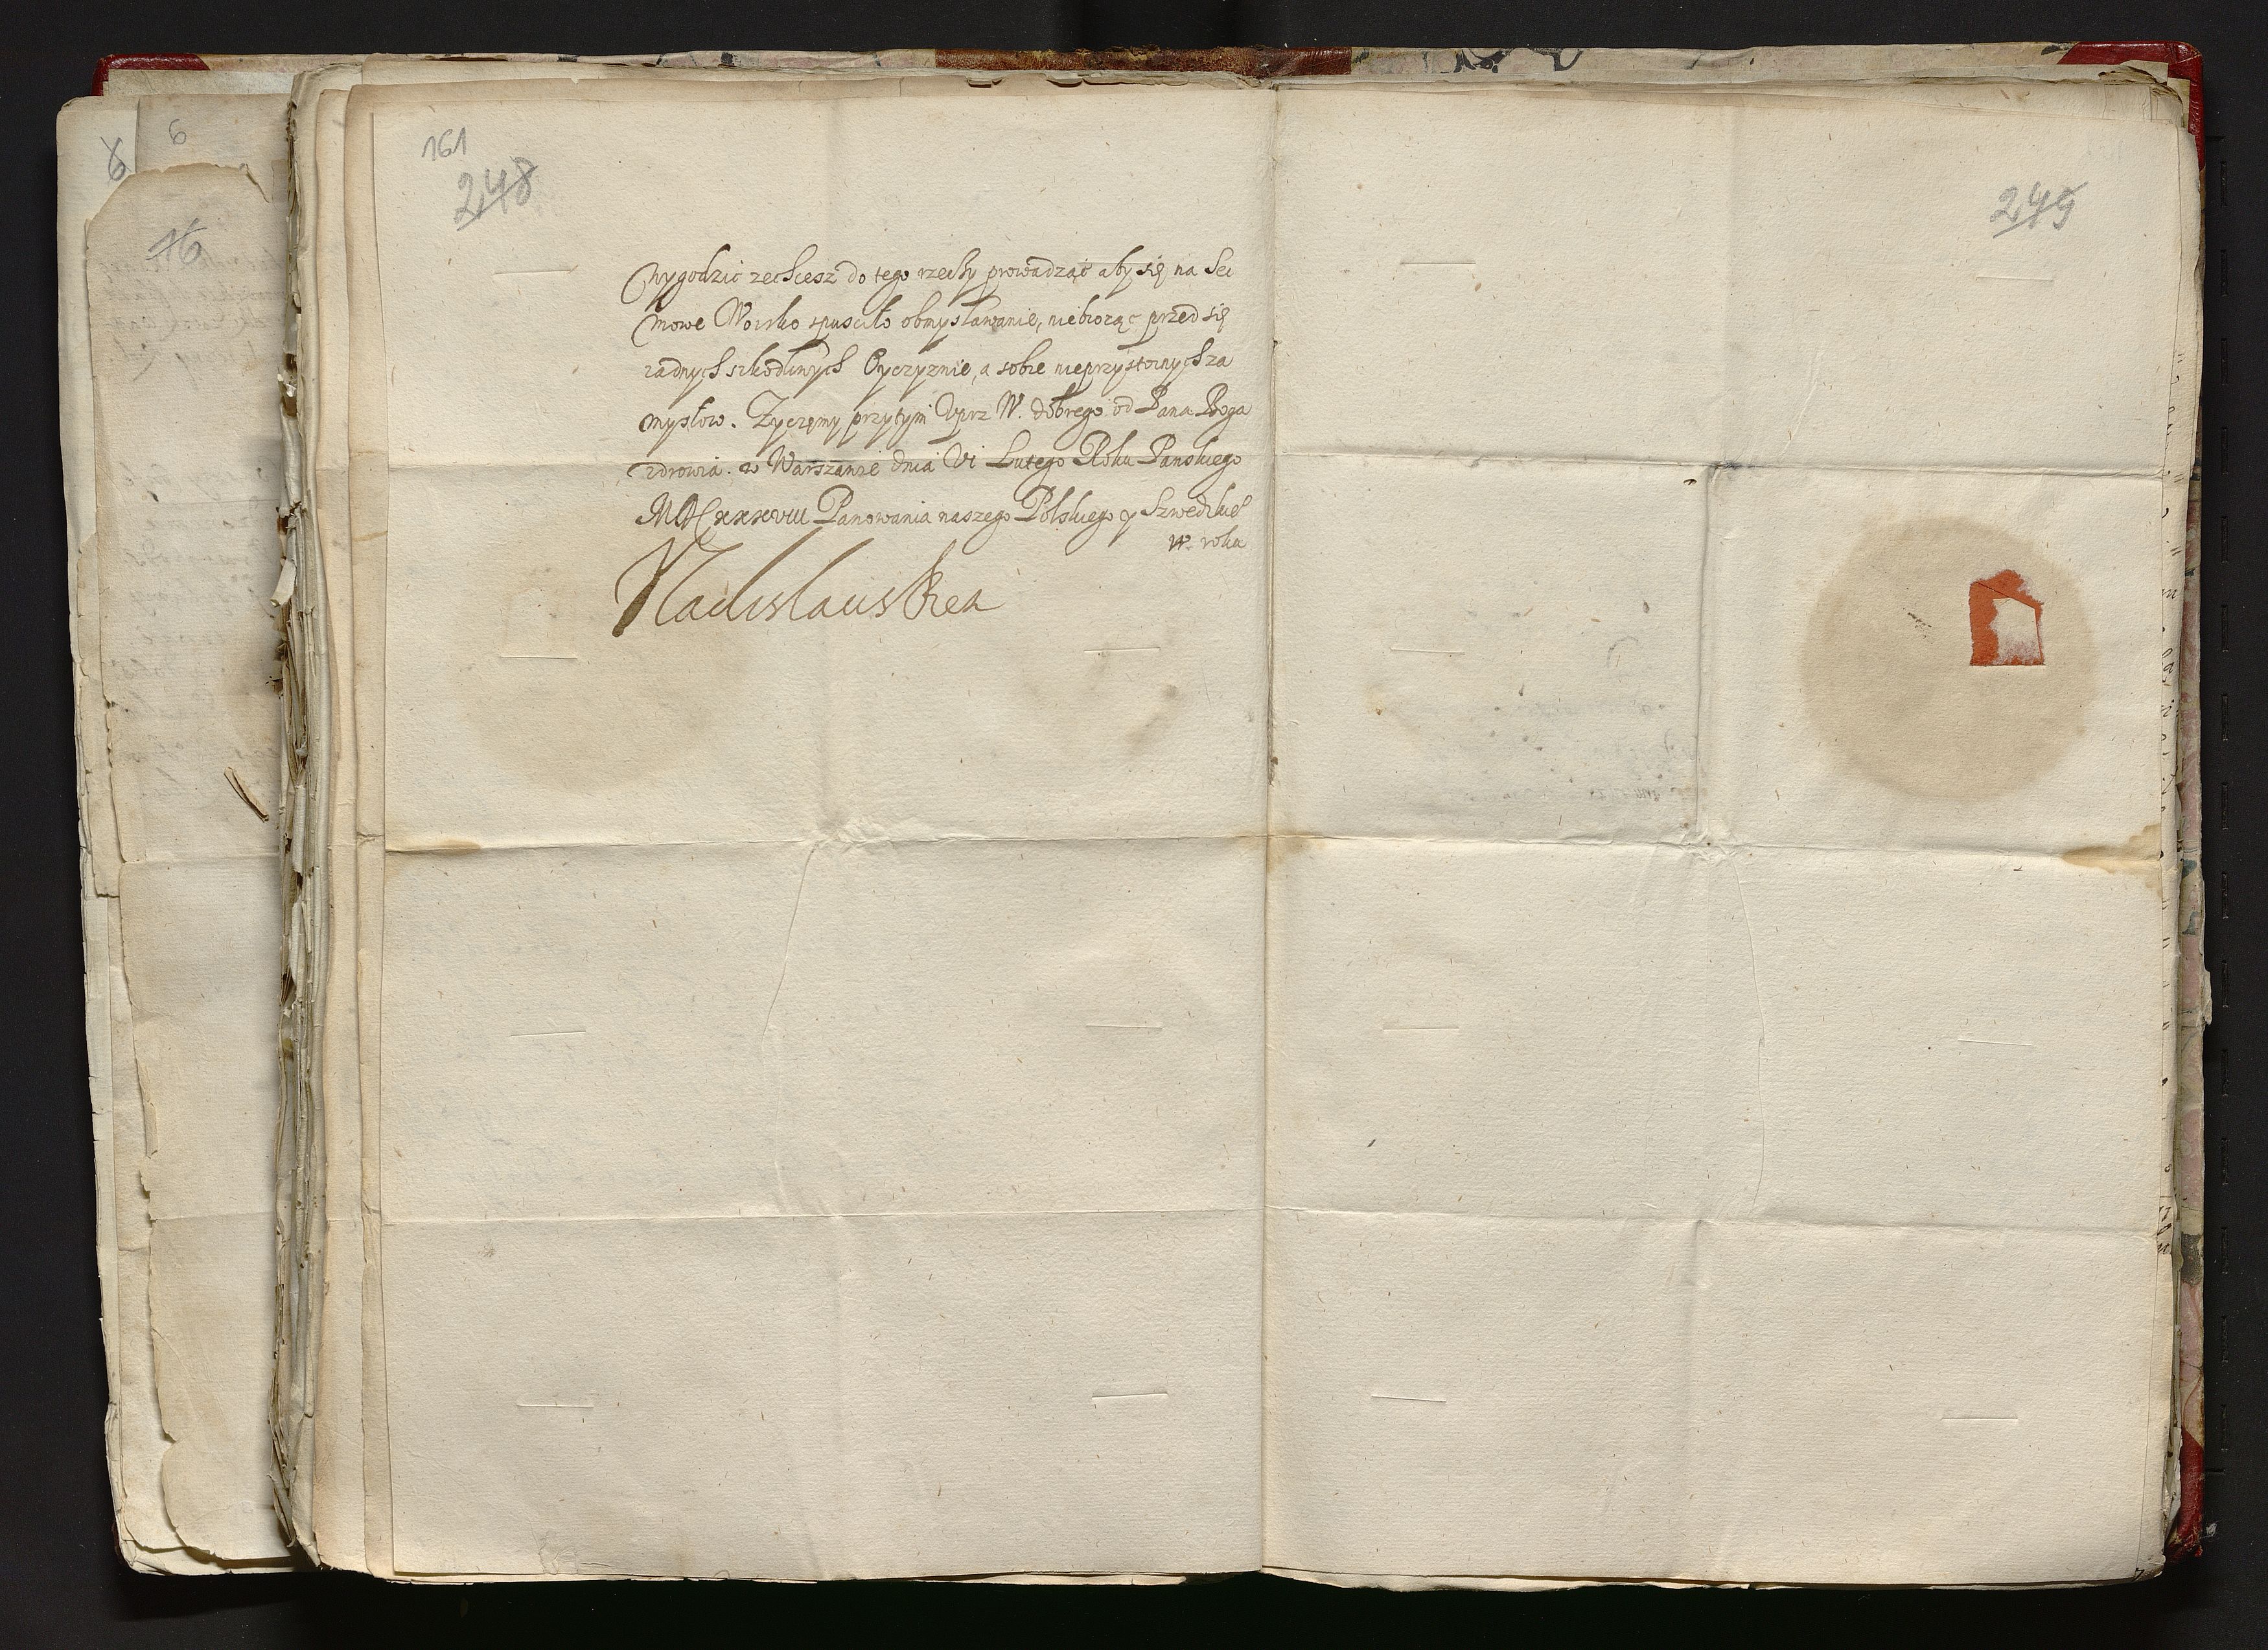 161
248
wygodzić zechcesz do tego rzeczy prowadząc aby się na Sei
mowe Woisko spusciło obmysławanie, niebiorąc przed się
zadnych szkodliwych Oyczyznie, a sobie nieprzystoinych za
mysłow. Zyczemy przytym Uprz W. dobrego od Pana Boga
zdrowia. w Warszawie dnia VI Lutego Roku Panskiego
MDCxxxviii Panowania naszego Polskiego y Szwedzkieo
roku
Vladislaus Rex
249
6
6
16